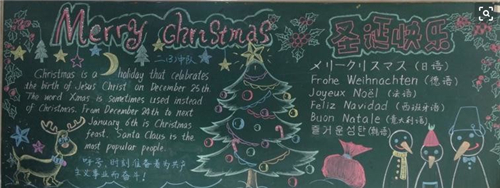 Merry christmas
二(3)中队
Christmas is a holiday that celebrates
the birth of Jesus Christ on December 25th.
The word Xmas is sometimes used instead
of Christmas. From December 24th to next
January 6th is Christmas
feast. Santa Claus is the
most popular people.
呼号:时刻准备着为共产
主义事业而奋斗!
圣诞快乐
メリークリスマス (日语)
Frohe Weihnachten (德语)
Joyeux Noël (法语)
Feliz Navidad (西班牙语)
Buon Natale (意大利语)
즐거운성탄 (韩语)